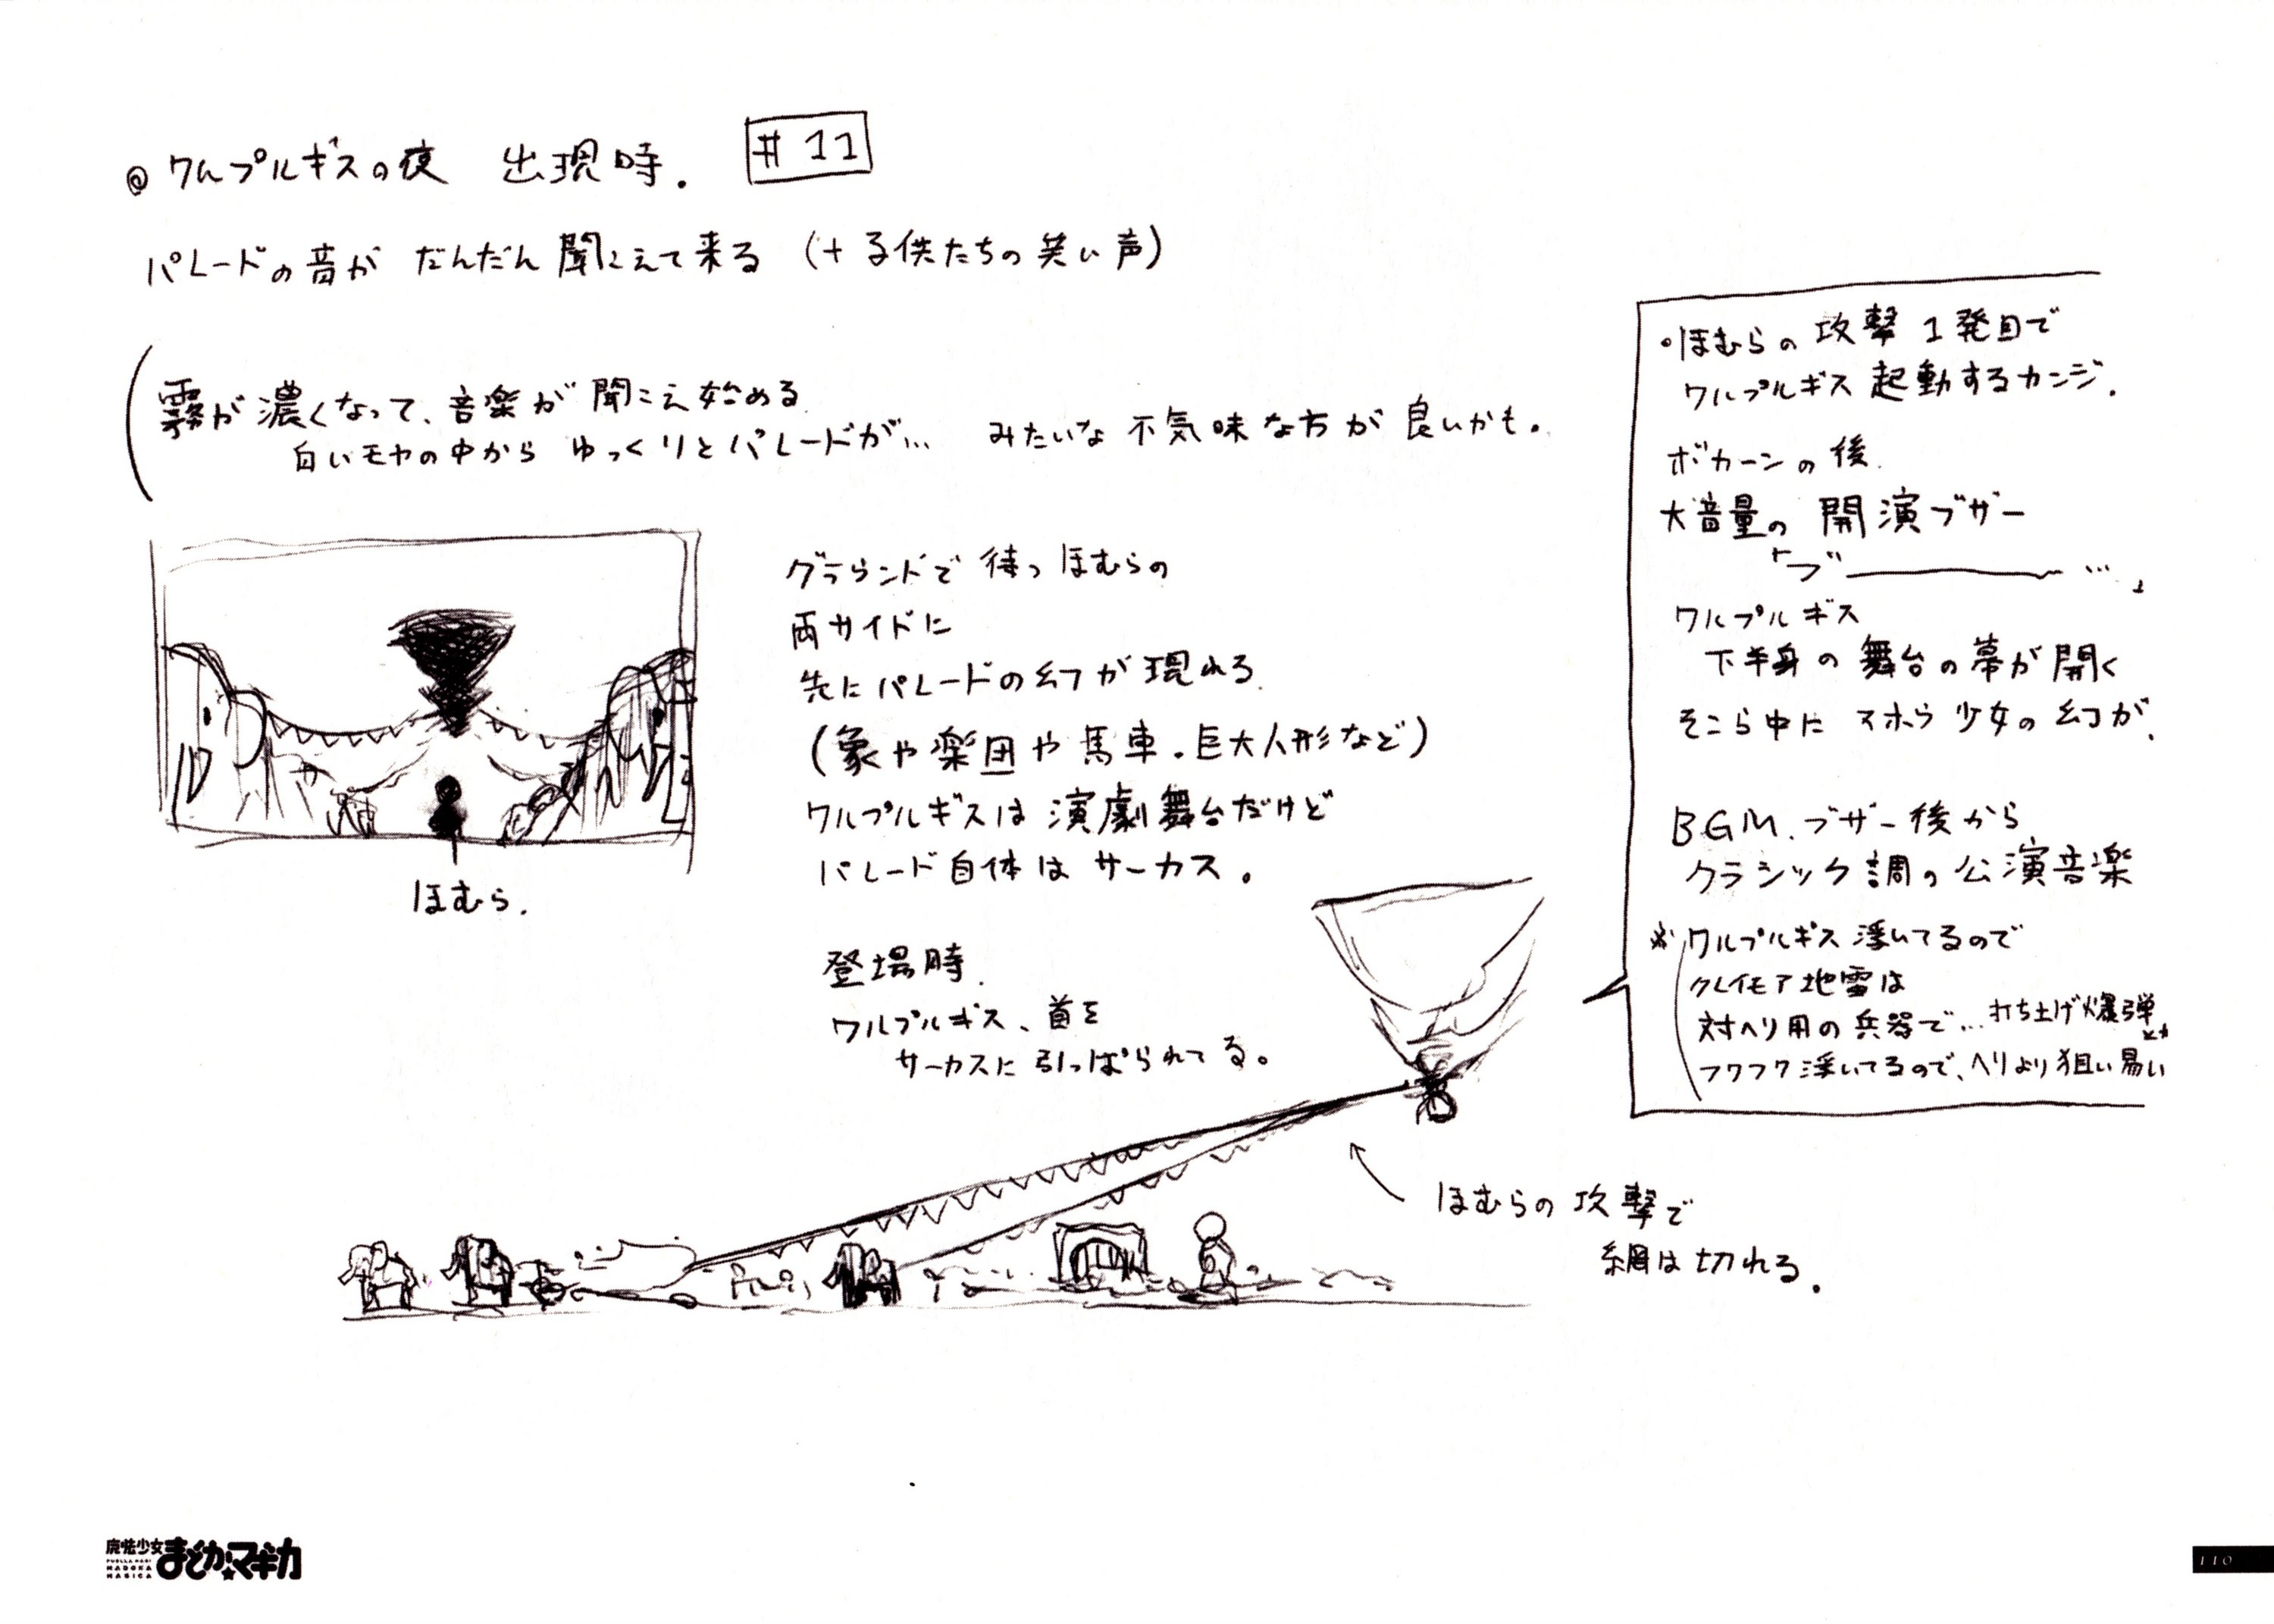 ◎ワルプルギスの夜 出現時. #11
パレードの音が だんだん聞こえて来る (+子供たちの笑い声)
霧が濃くなって、音楽が聞こえ始める
白いモヤの中から ゆっくりとパレードが… みたいな不気味な方が良いかも。
グラウンドで待つほむらの
両サイドに
先にパレードの幻が現れる.
(象や楽団や馬車.巨大人形など)
ワルプルギスは演劇舞台だけど
パレード自体はサーカス。
ほむら.
登場時.
ワルプルギス、首を
サーカスに引っぱられてる。
ほむらの攻撃で
綱は切れる.
・ほむらの攻撃1発目で
ワルプルギス起動するカンジ.
ボカーンの後.
大音量の開演ブザー
「ブ―――…」
ワルプルギス
下半身の舞台の幕が開く
そこら中にマホウ少女の幻が.
BGM.ブザー後から
クラシック調の公演音楽
※ワルプルギス浮いてるので
クレイモア地雷は
対ヘリ用の兵器で…打ち上げ爆弾とか
フワフワ浮いてるので、ヘリより狙い易い
魔法少女まどか☆マギカ
PUELLA MAGI
MADOKA
MAGICA
110